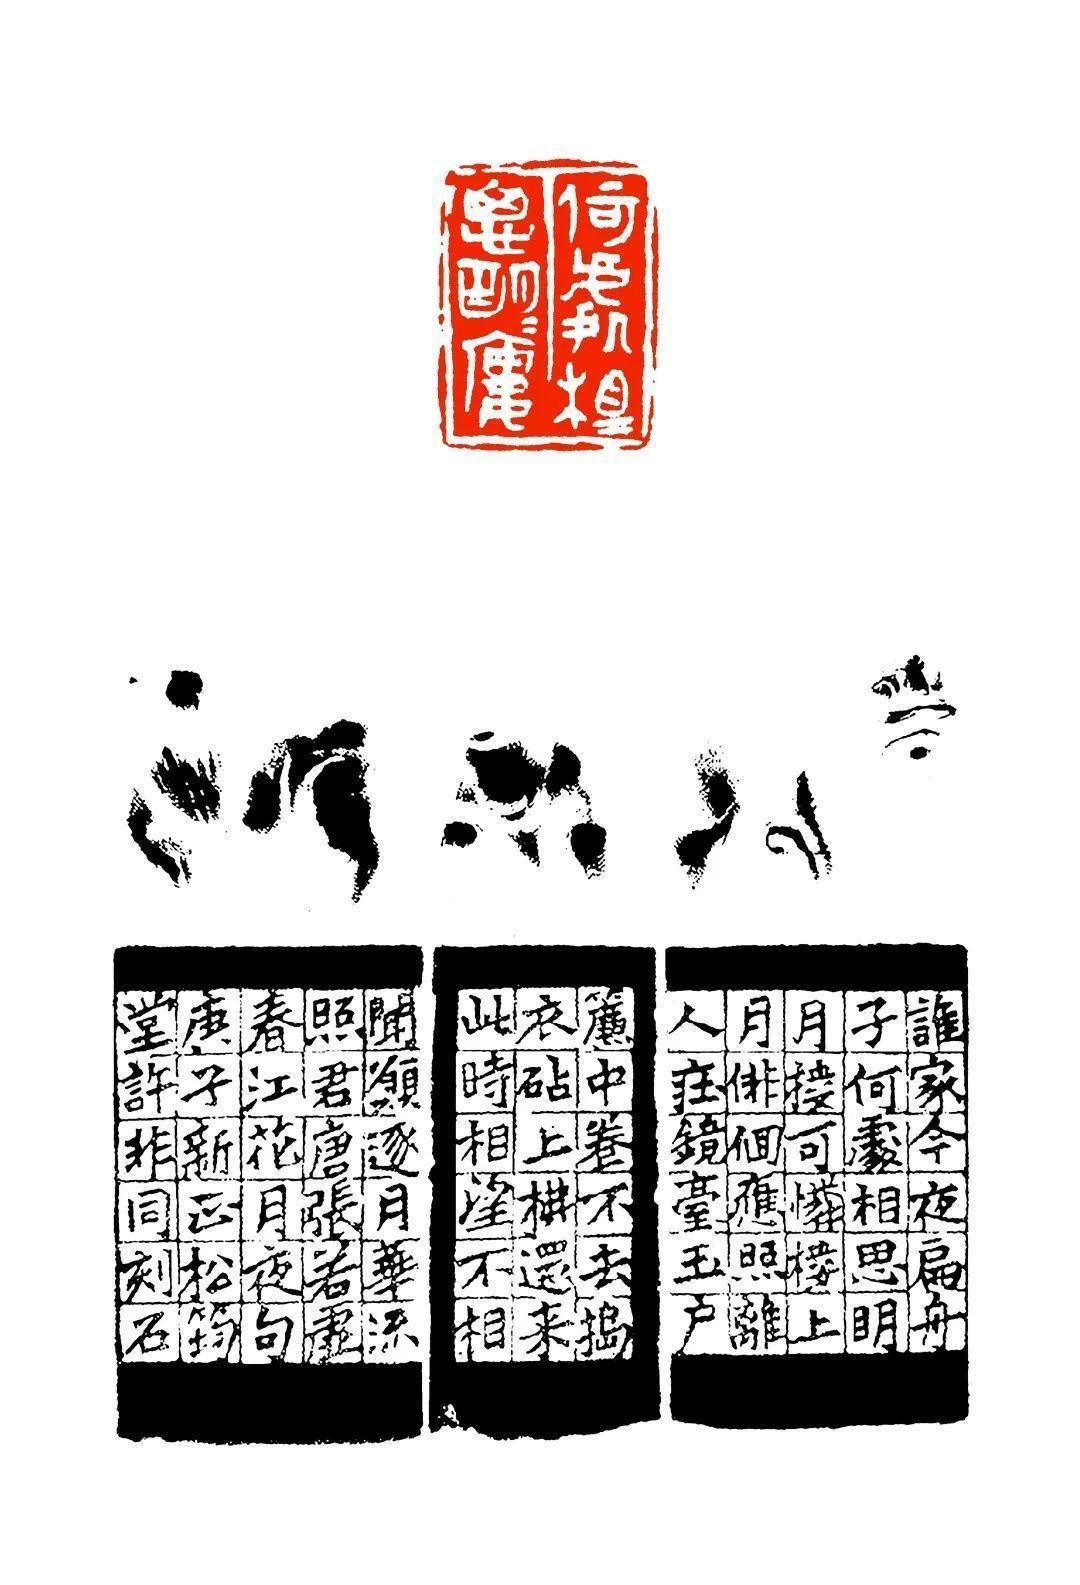 何處相
思明月樓
誰家今夜扁舟
子何處相思明
月樓可憐樓上
月俳佪應照離
人莊鏡臺玉戶
簾中卷不去搗
衣砧上拂還来
此時相望不相
聞願逐月華流
照君唐張若虛
春江花月夜句
庚子新正松筠
堂許非同刻石